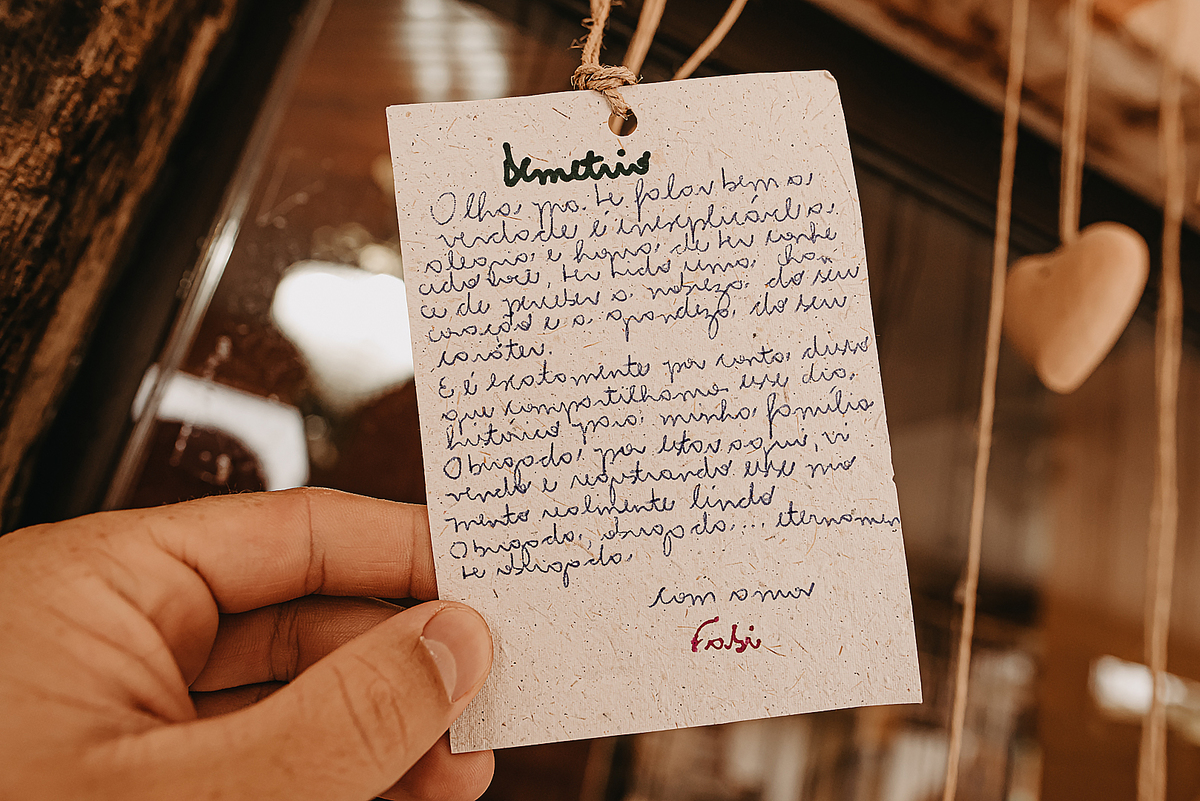 Demetrio
Olha, pra te falar bem a
verdade é inexplicável a
alegria e honra de ter conhe
cido você, ter tido uma chan
ce de perceber a nobreza do seu
coração e a grandeza do seu
caráter.
E é exatamente por conta disso
que compartilhamos esse dia
histórico para minha família
Obrigada, por estar aqui, vi
vendo e registrando esse mo
mento realmente lindo
Obrigada, obrigada... eternamen
te obrigada.
com amor
Fabi